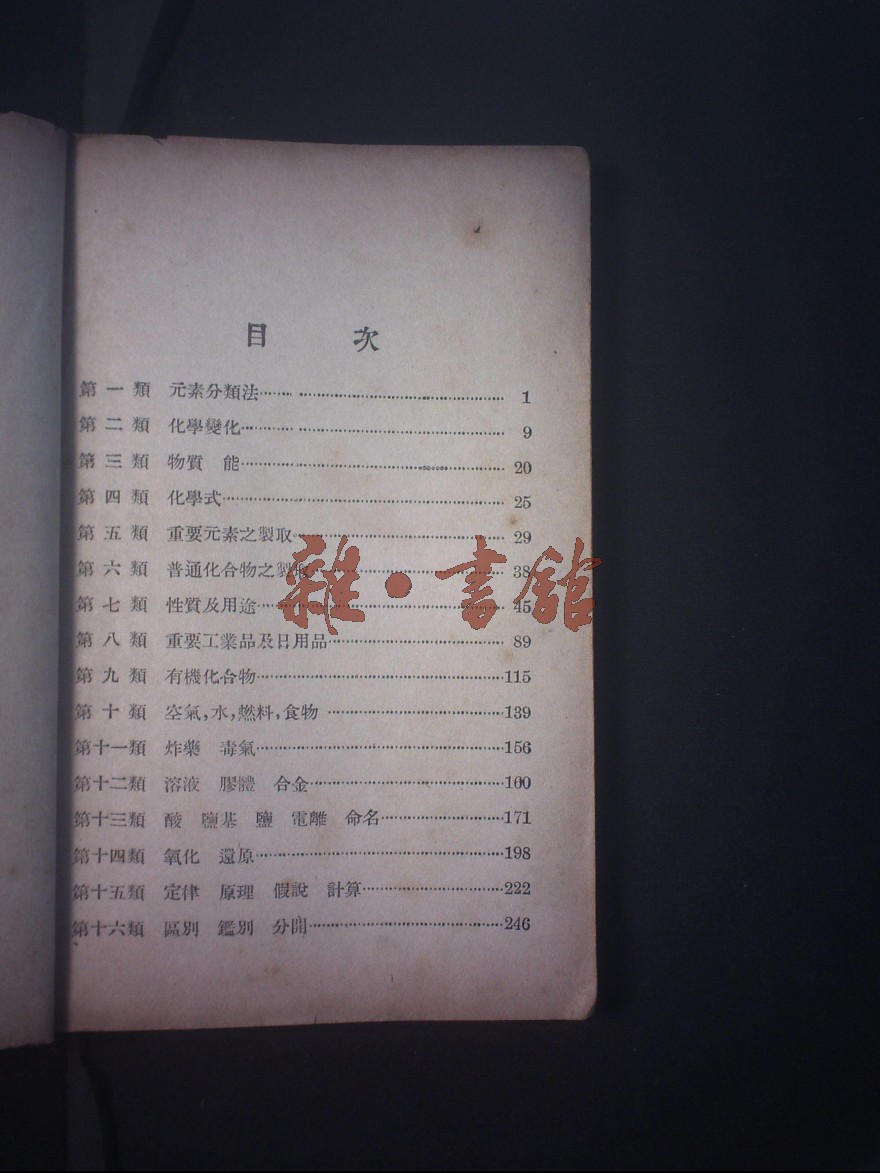 目　次
第一類 元素分類法…… ……………………………… 1
第二類 化學變化……… ……………………………… 9
第三類 物質 能………………………………………… 20
第四類 化學式…………………………………………… 25
第五類 重要元素之製取………………………………… 29
第六類 普通化合物之製取……………………………… 38
第七類 性質及用途……………………………………… 45
第八類 重要工業品及日用品…………………………… 89
第九類 有機化合物………………………………………115
第十類 空氣,水,燃料,食物 ……………………………139
第十一類 炸藥 毒氣……………………………………156
第十二類 溶液 膠體 合金……………………………160
第十三類 酸 鹽基 鹽 電離 命名…………………171
第十四類 氧化 還原……………………………………198
第十五類 定律 原理 假說 計算……………………222
第十六類 區別 鑑別 分開……………………………246
雜·書館